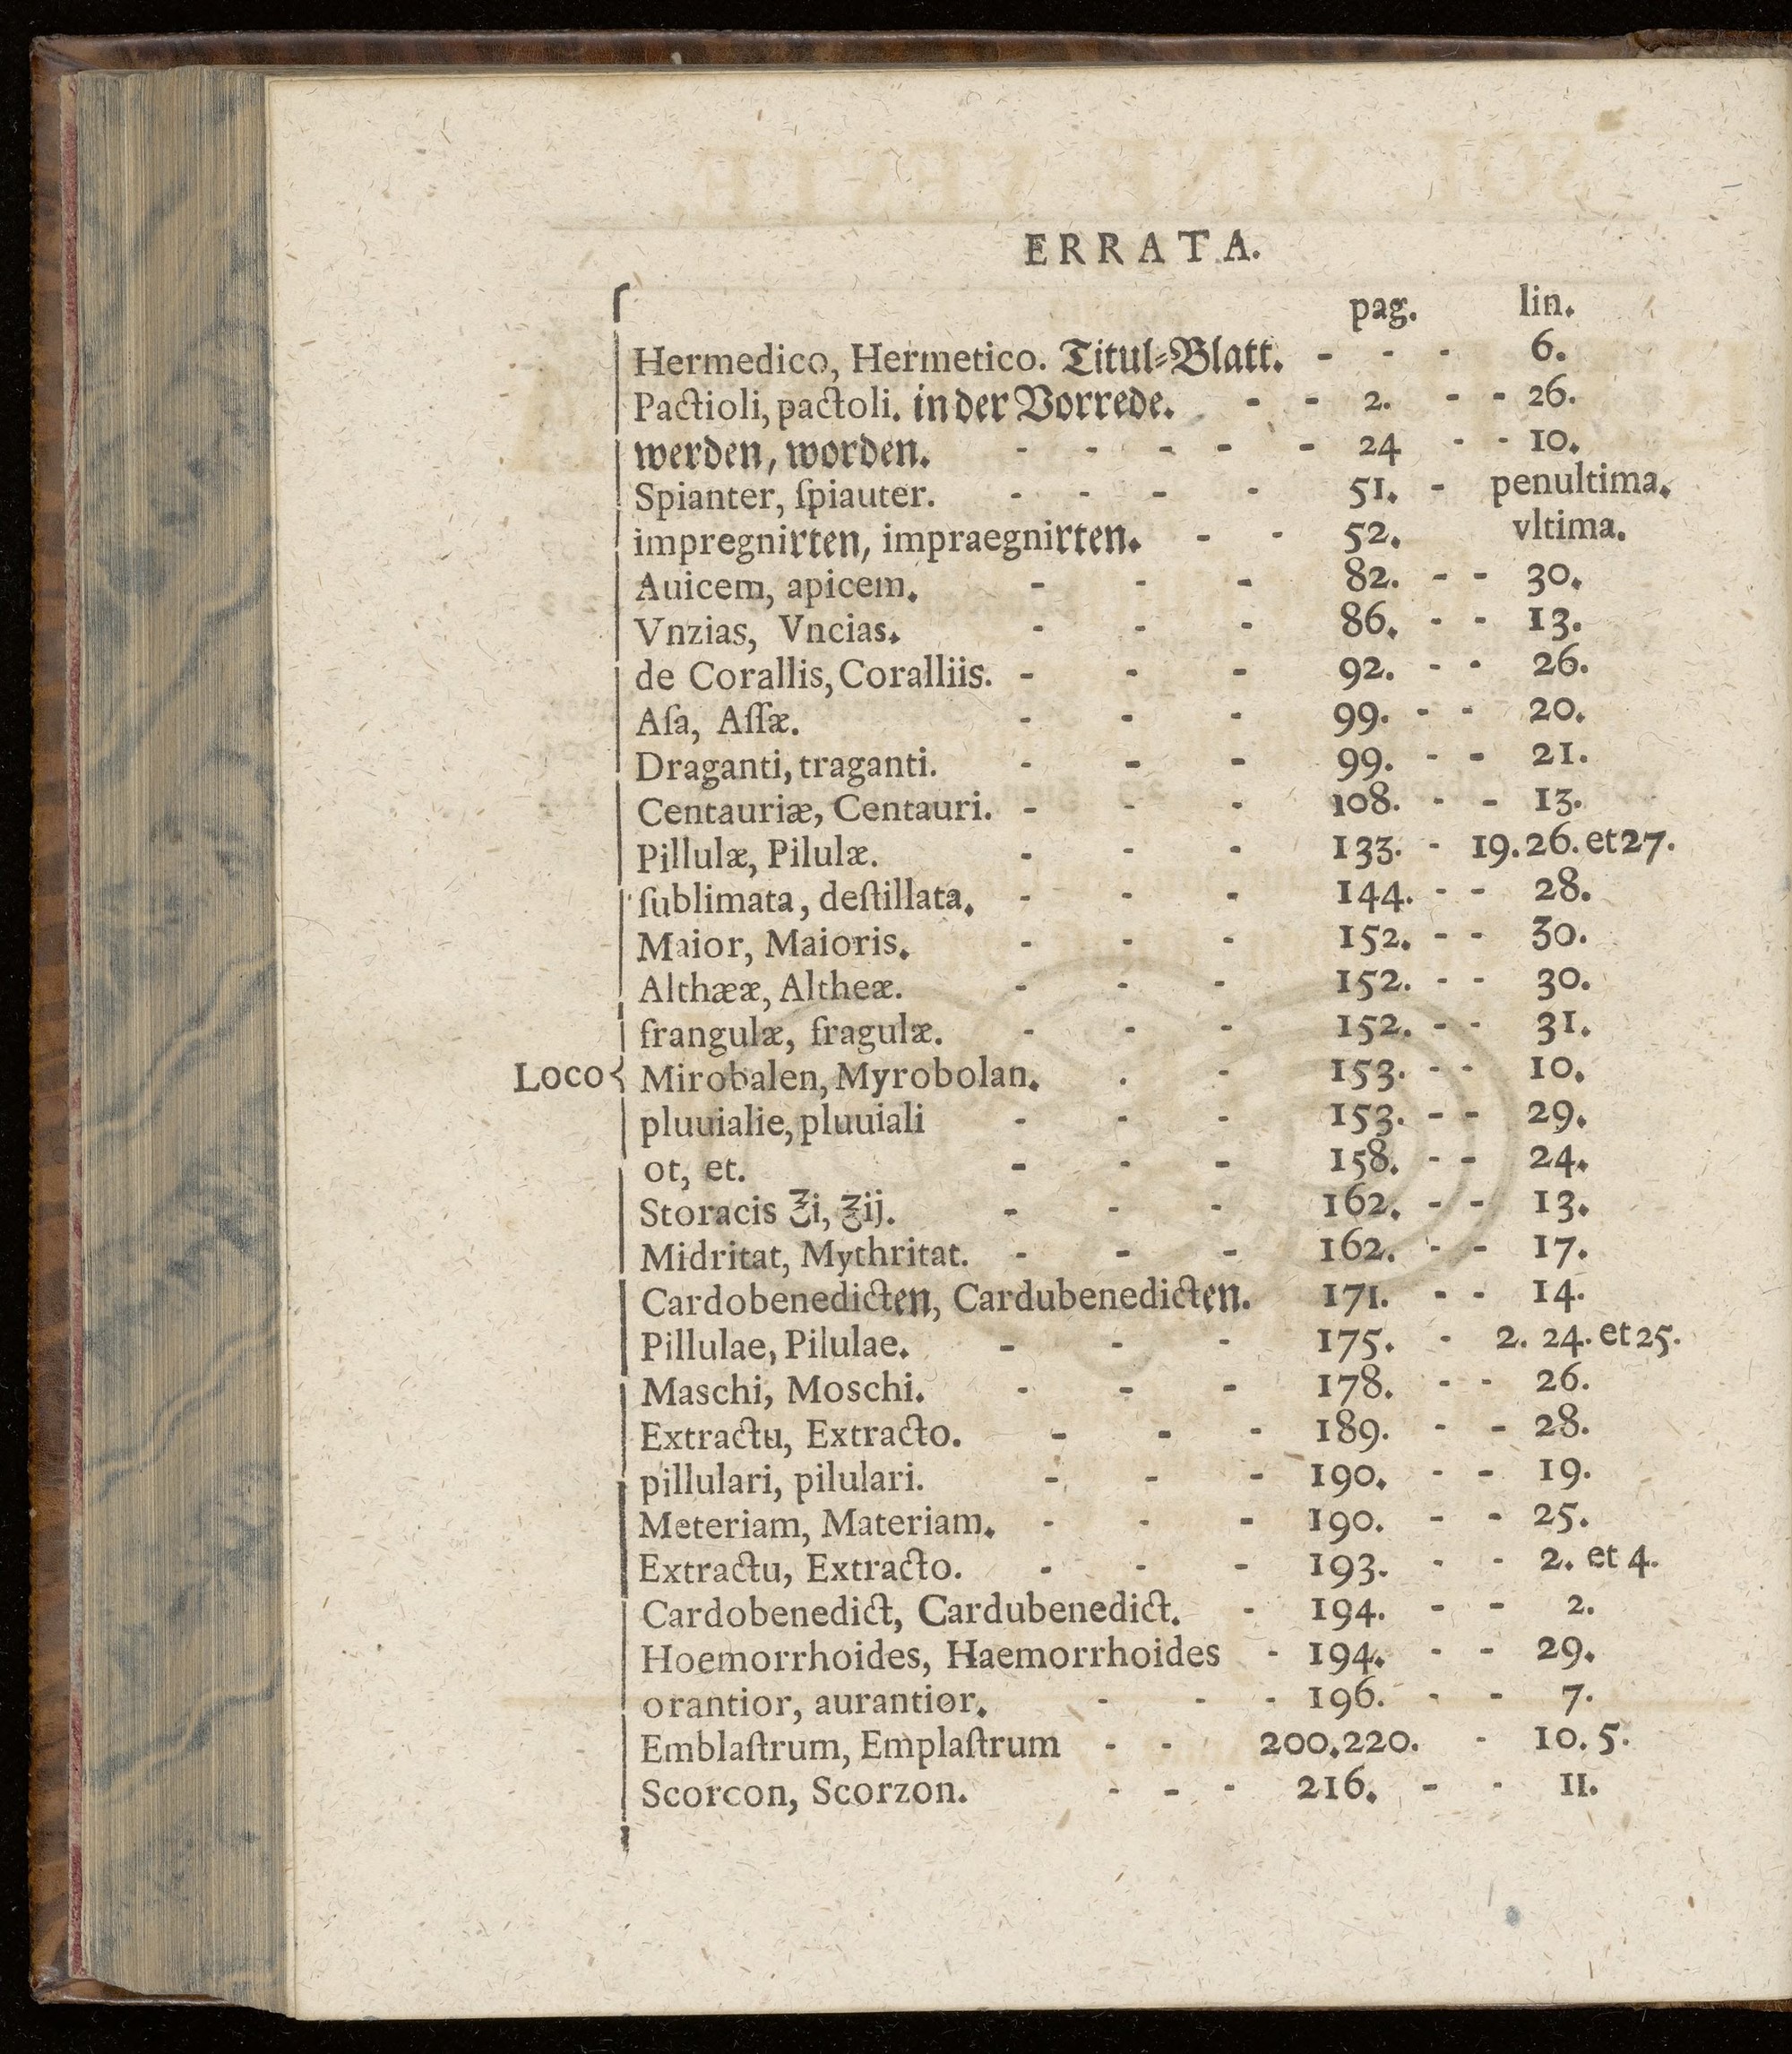 ERRATA.
pag. lin.
Hermedico, Hermetico. Titul=Blatt. - - - 6.
Pactioli, pactoli. in der Vorrede. - - 2. - - 26.
werden, worden. - - - - - 24 - - 10.
Spianter, ſpiauter. - - - - 51. - penultima.
impregnirten, impraegnirten. - - 52. vltima.
Auicem, apicem. - - - 82. - - 30.
Vnzias, Vncias. - - - 86. - - 13.
de Corallis, Coralliis. - - - 92. - - 26.
Aſa, Aſſæ. - - - 99. - - 20.
Draganti, traganti. - - - 99. - - 21.
Centauriæ, Centauri. - - - 108. - - 13.
Pillulæ, Pilulæ. - - - 133. - 19. 26. et 27.
ſublimata, deſtillata. - - - 144. - - 28.
Maior, Maioris. - - - 152. - - 30.
Althææ, Altheæ. - - - 152. - - 30.
frangulæ, fragulæ. - - - 152. - - 31.
Loco { Mirobalen, Myrobolan. . - 153. - - 10.
pluuialie, pluuiali - - - 153. - - 29.
ot, et. - - - 158. - - 24.
Storacis ℥i, ℥ij. - - - 162. - - 13.
Midritat, Mythritat. - - - 162. - - 17.
Cardobenedicten, Cardubenedicten. 171. - - 14.
Pillulae, Pilulae. - - - 175. - 2. 24. et 25.
Maschi, Moschi. - - - 178. - - 26.
Extractu, Extracto. - - - 189. - - 28.
pillulari, pilulari. - - - 190. - - 19.
Meteriam, Materiam. - - - 190. - - 25.
Extractu, Extracto. - - - 193. - - 2. et 4.
Cardobenedict, Cardubenedict. - 194. - - 2.
Hoemorrhoides, Haemorrhoides - 194. - - 29.
orantior, aurantior. - - - 196. - - 7.
Emblaſtrum, Emplaſtrum - - 200. 220. - 10. 5.
Scorcon, Scorzon. - - - 216. - - 11.